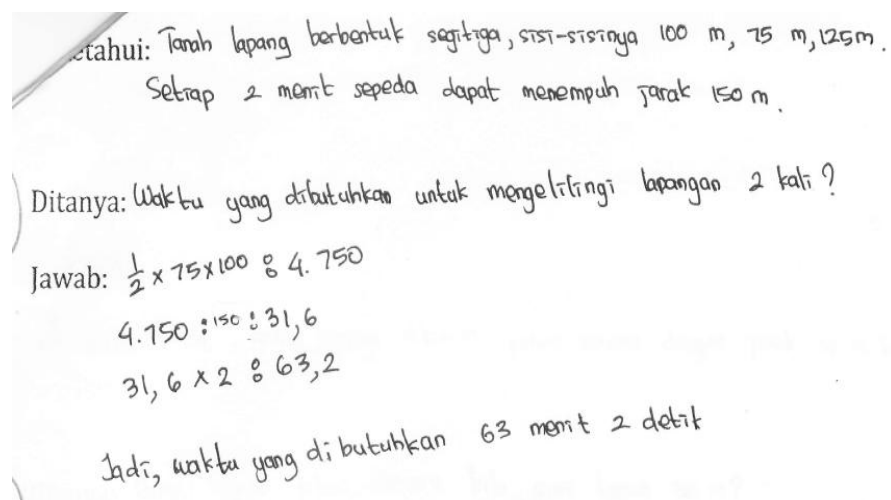 etahui: Tanah lapang berbentuk segitiga, sisi-sisinya 100 m, 75 m, 125m.
Setiap 2 menit sepeda dapat menempuh jarak 150 m.
Ditanya: Waktu yang dibutuhkan untuk mengelilingi lapangan 2 kali?
Jawab: 1/2 x 75 x 100 : 4.750
4.750 : 150 : 31,6
31,6 x 2 : 63,2
Jadi, waktu yang dibutuhkan 63 menit 2 detik